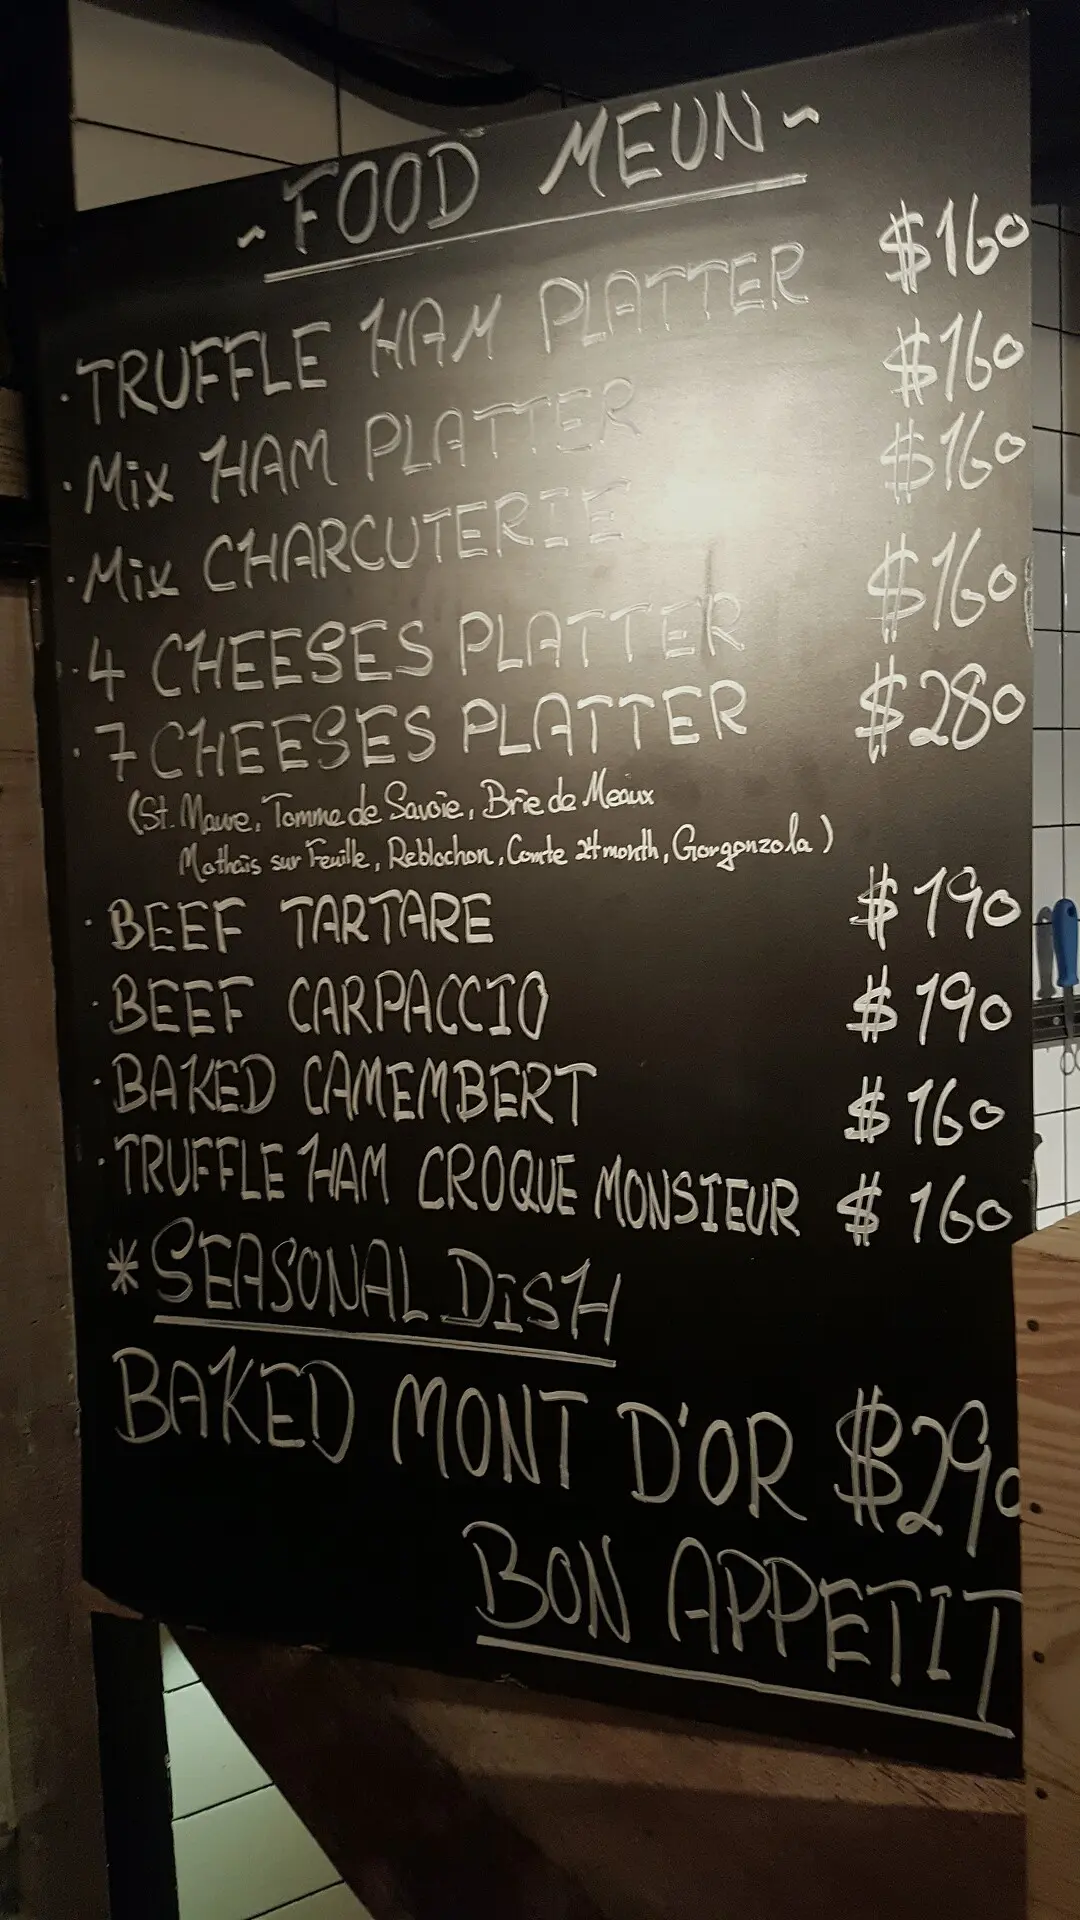 ~ FOOD MEUN ~
· TRUFFLE HAM PLATTER $160
· Mix HAM PLATTER $160
· Mix CHARCUTERIE $160
· 4 CHEESES PLATTER $160
· 7 CHEESES PLATTER $280
(St. Maure, Tomme de Savoie, Brie de Meaux
Mothais sur Feuille, Reblochon, Comte 24 month, Gorgonzola)
· BEEF TARTARE $190
· BEEF CARPACCIO $190
· BAKED CAMEMBERT $160
· TRUFFLE HAM CROQUE MONSIEUR $160
* SEASONAL DISH
BAKED MONT D'OR $290
BON APPETIT